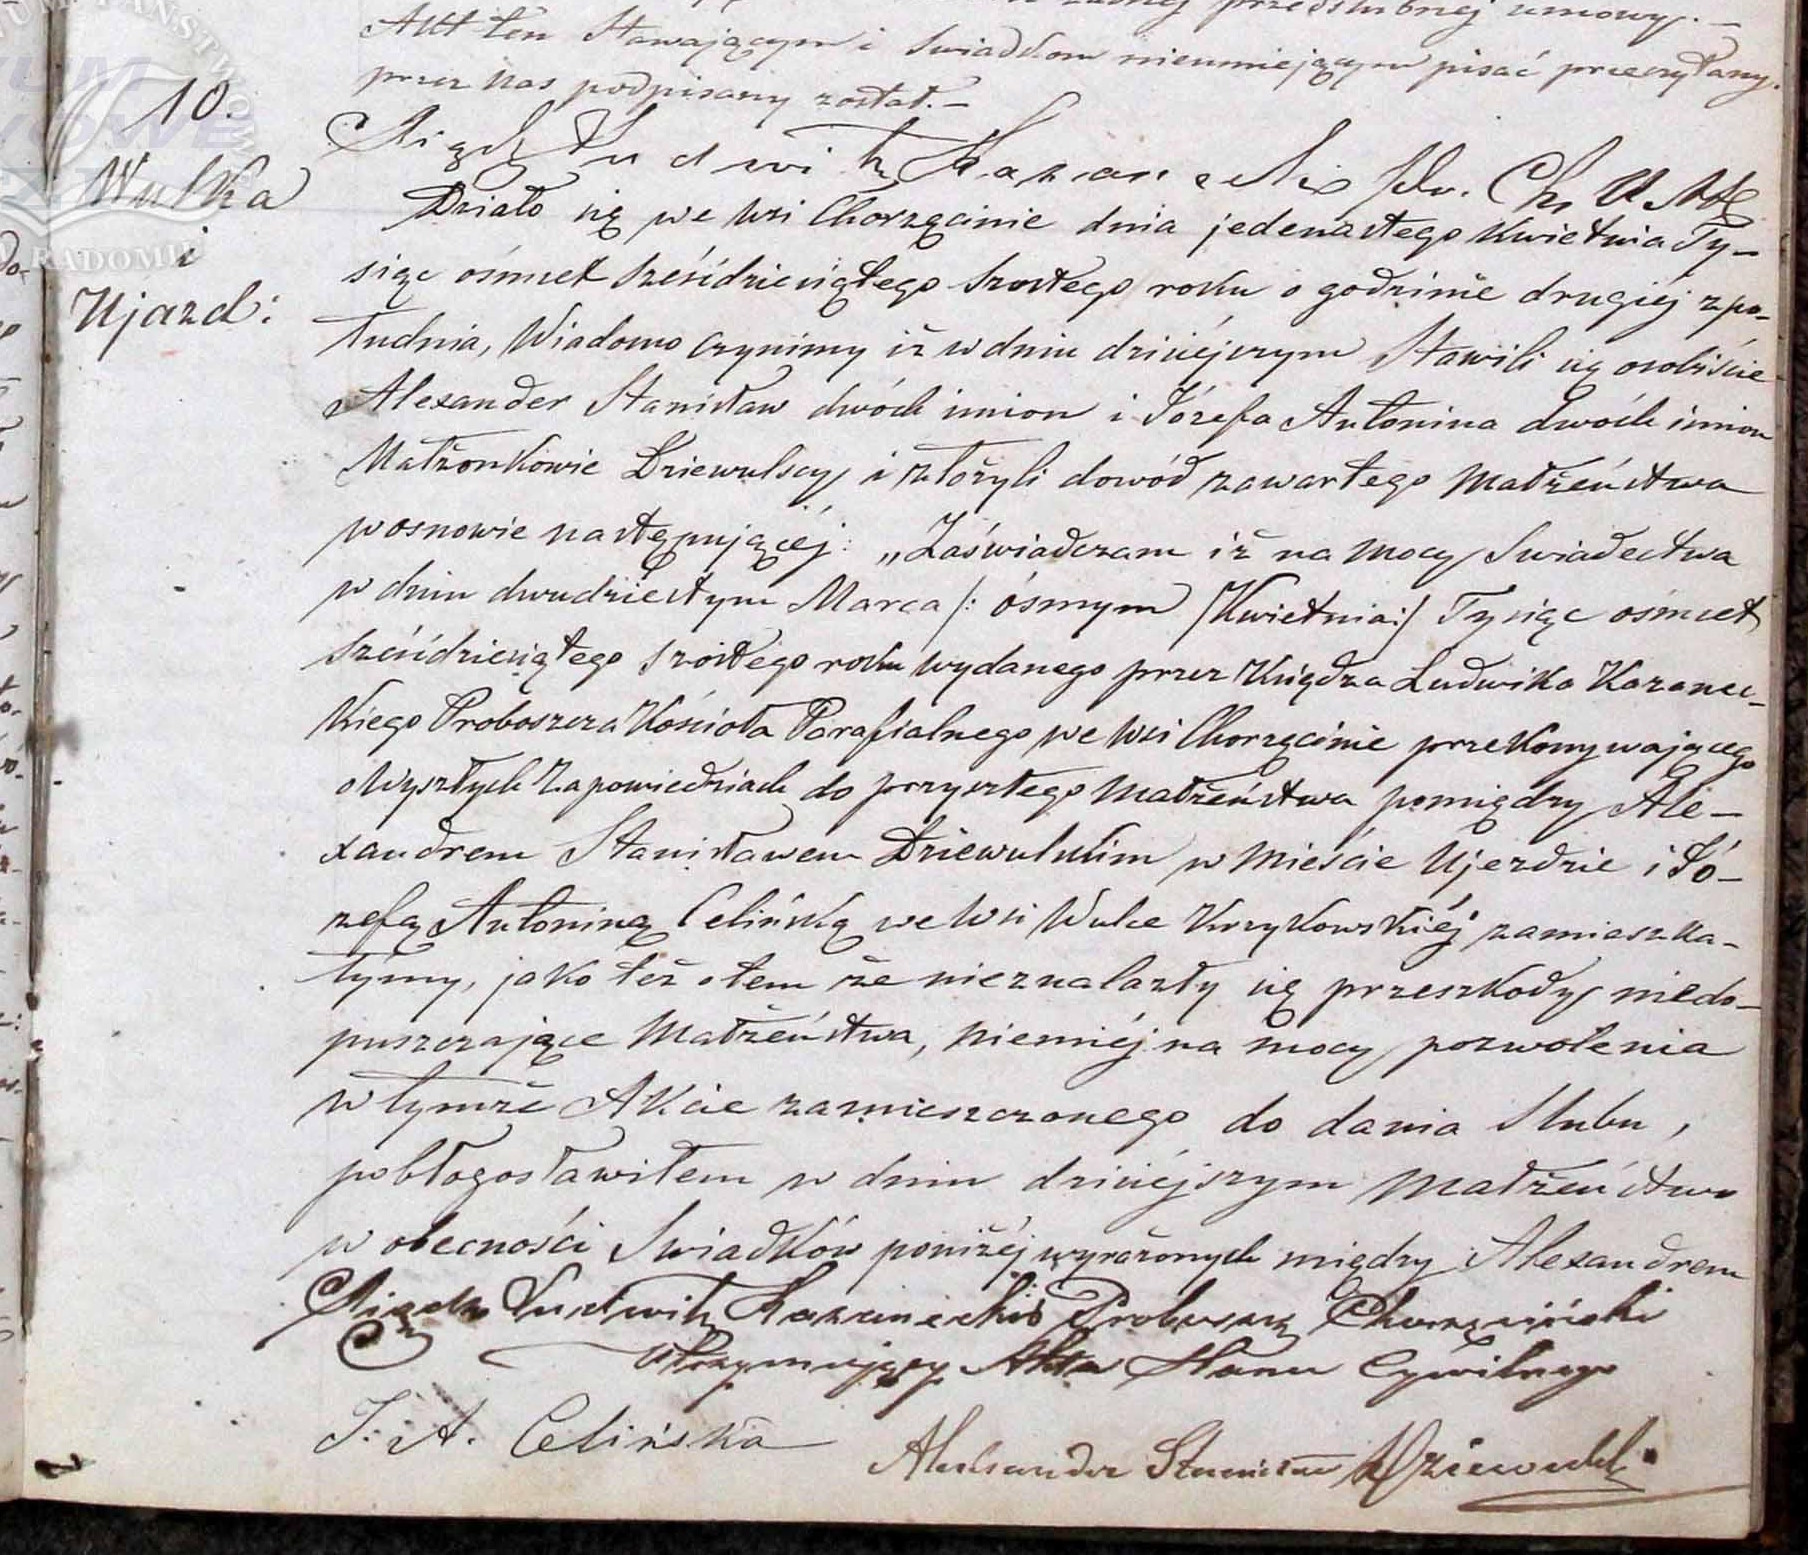 żadnej przedślubnej umowy. –
Akt ten Stawającym i Swiadkom nieumiejącym pisać przeczytany,
przez Nas podpisany został. –
10.
Wulka
i
Ujazd:
Ksiądz Ludwik Kazanecki Pr. Ch. U. A. S. C.
Działo się we wsi Chorzęcinie dnia jedenastego Kwietnia Ty-
siąc ośmset sześćdziesiątego szostego roku o godzinie drugiej z po-
łudnia, Wiadomo czynimy iż w dniu dzisiéjszym Stawili się osobiście
Alexander Stanisław dwóch imion i Józefa Antonina dwóch imion
Małżonkowie Dziewulscy i złożyli dowód zawartego Małżeństwa
w osnowie następującéj: „Zaświadczam iż na mocy Swiadectwa
w dniu dwudziestym Marca /: ósmym Kwietnia :/ Tysiąc ośmset
sześćdziesiątego szóstego roku wydanego przez Księdza Ludwika Kazanec-
kiego Proboszcza Kościoła Parafialnego we wsi Chorzęcinie przekonywającego
o wyszłych Zapowiedziach do przyszłego Małżeństwa pomiędzy Ale-
xandrem Stanisławem Dziewulskim w Mieście Ujezdzie i Jó-
zefą Antoniną Celińską we Wsi Wulce Krzykowskiéj zamieszka-
łymy, jako też o tem że nieznalazły się przeszkody niedo-
puszczające Małżeństwa, niemniéj na mocy pozwolenia
w tymże Akcie zamieszczonego do dania Slubu,
pobłogosławiłem w dniu dzisiéjszym Małżeństwo
w obecności Swiadków poniżéj wyrażonych między Alexandrem
Ksiądz Ludwik Kazanecki Proboszcz Chorzęciński
Utrzymujący Akta Stanu Cywilnego
J. A. Celińska
Aleksander Stanisław Dziewulski